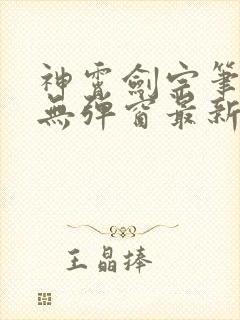 神霄劍宗筆
無彈窗最新
王晶捧